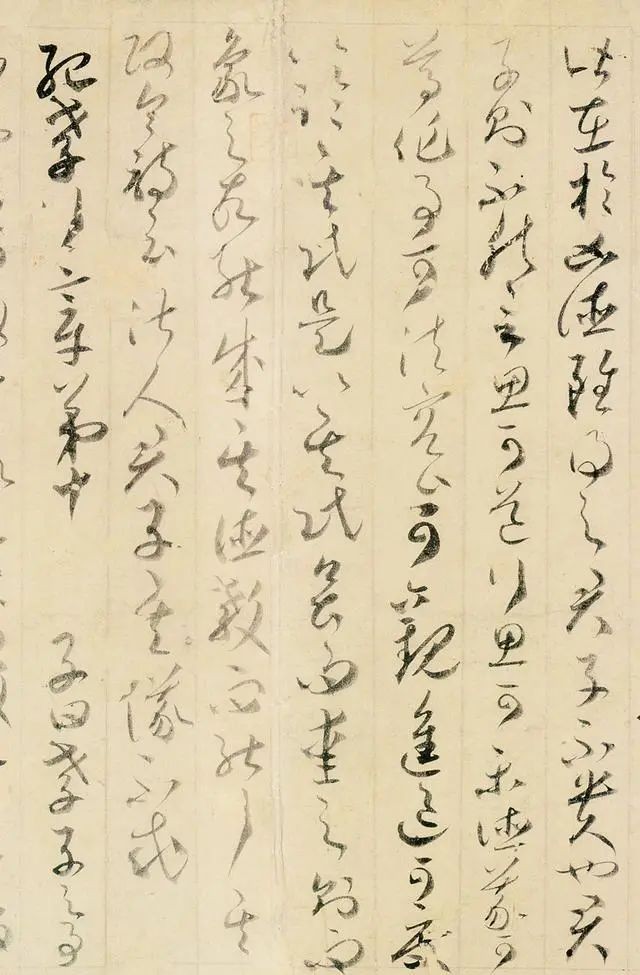 皆在於凶德雖得之君子不貴也君
子則不然言思可道行思可樂德義可
尊作事可法容止可觀進退可度
以臨其民是以其民畏而愛之則而
象之故能成其德教而能行其
政令詩云淑人君子其儀不忒
紀孝行章第十 子曰孝子之事